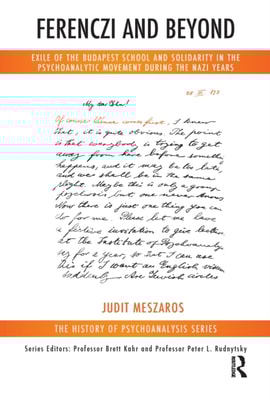 FERENCZI AND BEYOND
EXILE OF THE BUDAPEST SCHOOL AND SOLIDARITY IN THE
PSYCHOANALYTIC MOVEMENT DURING THE NAZI YEARS
My dear
Of course comes first, I know
that, it is quite obvious. The point
is that everybody is trying to get
away from here before something
happens, and it may be too late,
and we shall be in the same
night. Maybe this is only a group
psychosis, but one never knows.
Now there is just one thing you can
do for me. Please let me have
a fictive invitation to give lectures
at the Institute of Psychoanaly
sis for a year, so that I can use
this if I want an English visa
suddenly. Are Jewish circles
JUDIT MESZAROS
THE HISTORY OF PSYCHOANALYSIS SERIES
Series Editors: Professor Brett Kahr and Professor Peter L. Rudnytsky
Routledge